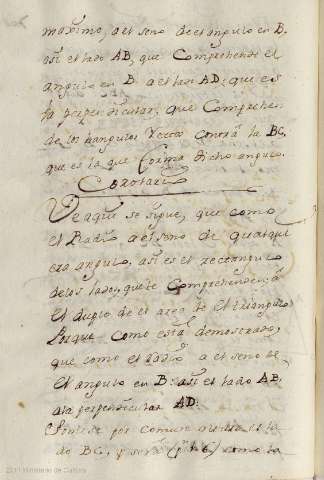 maximo, a el seno de el angulo en B.
asi el lado AB, que Comprehende el
angulo en B a el lado AD; que es
la perpendicular, que Comprehen
de los angulos rectos contra la BC,
que es la que forma dicho angulo.
Corolario
De aqui se sigue, que como
el Radio a el seno de qualqui
era angulo, asi es el rectangulo
de los lados, que le Comprehenden, a
el duplo de el area de el triangulo
Porque como está demostrado,
que como el Radio a el seno de
el angulo en B: asi el lado AB.
a la perpendicular AD.
por comun altura el la
do BC, y será (p. 1. 6) como la
2011 Ministerio de Cultura